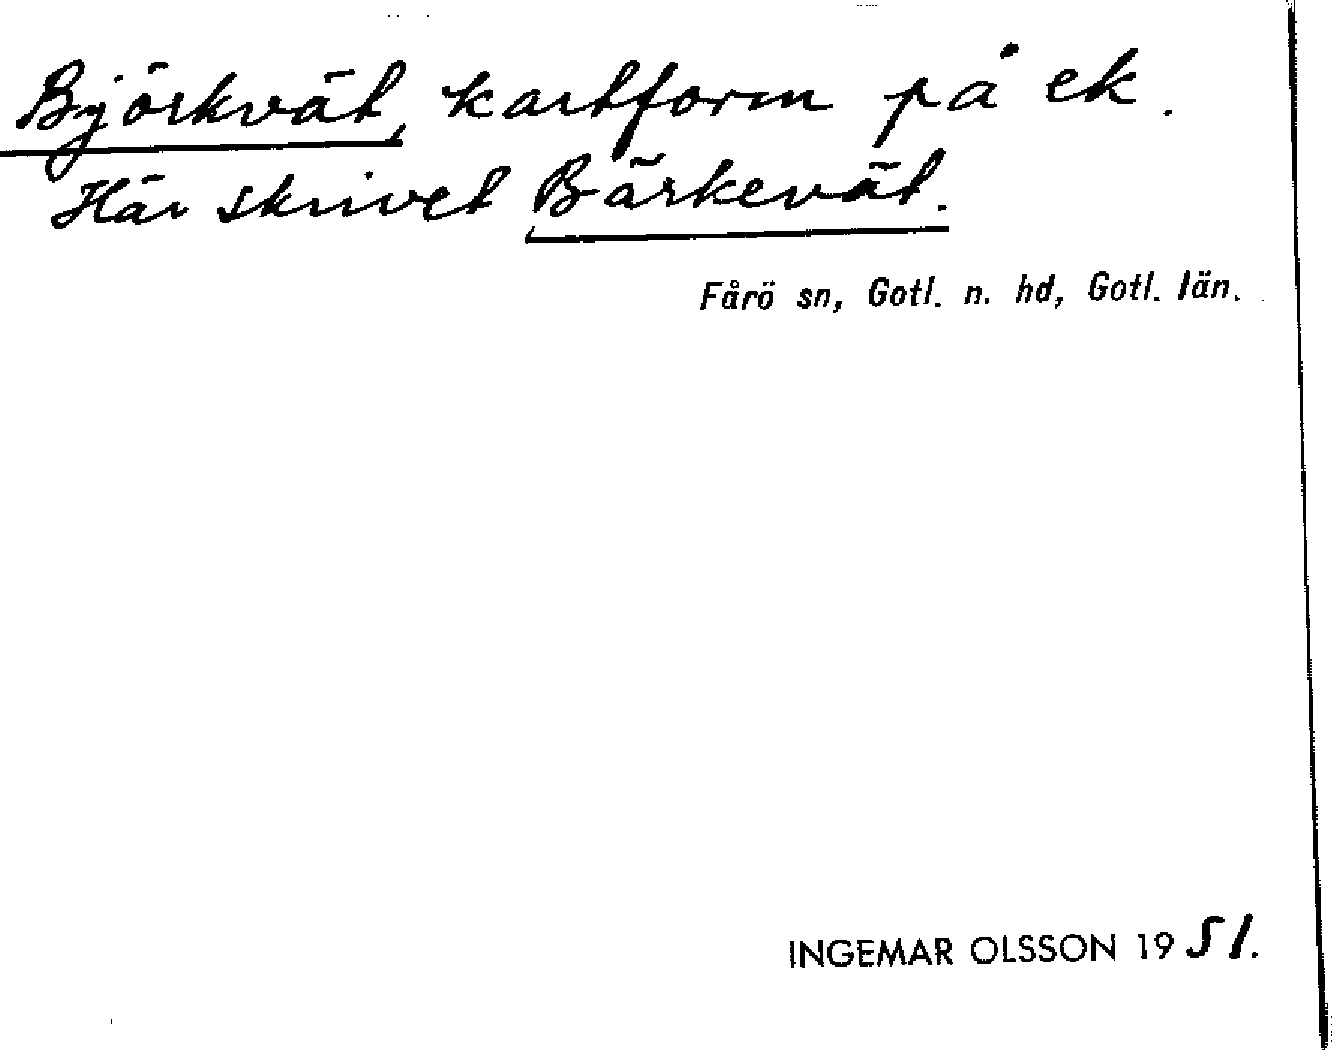 Björkvät, kartform på ek.
Här skrivet Bärkevät.
Fårö sn, Gotl. n. hd, Gotl. län.
INGEMAR OLSSON 1951.